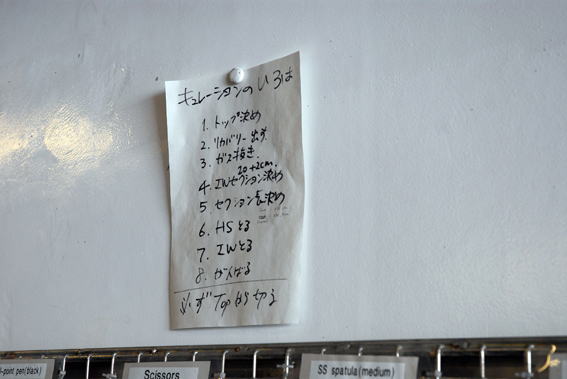 キュレーションのいろは
1. トップ決め
2. リカバリー出す
3. ガス抜き
20+2cm
4. IWセクション決め
5. セクション決め
6. HSとる
7. IWとる
8. がんばる
必ずTopから切る
l-point pen(black)
Scissors
SS spatula(medium)